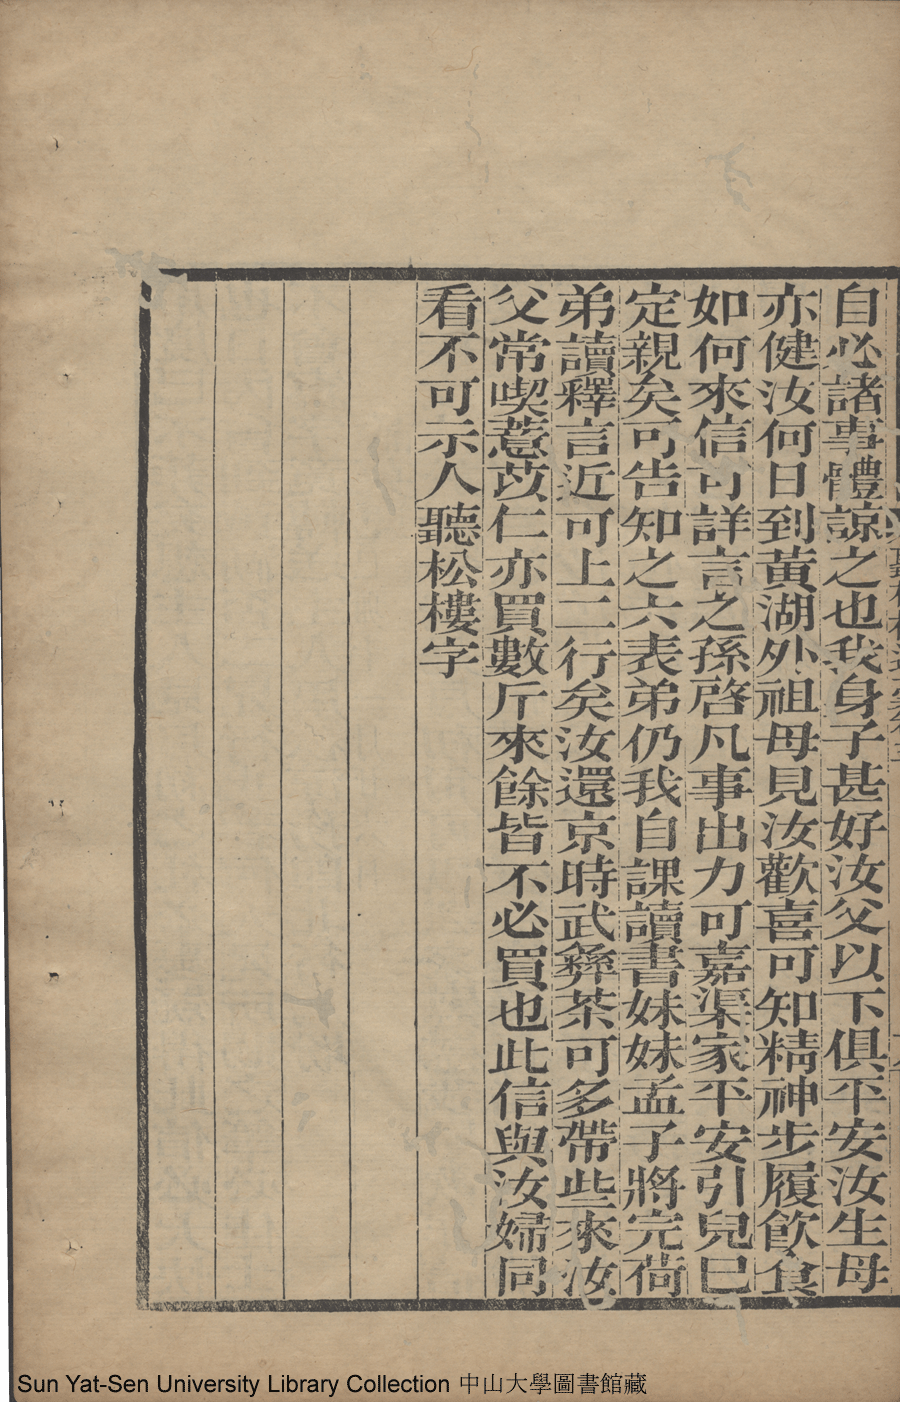 自必諸事體諒之也我身子甚好汝父以下俱平安汝生母
亦健汝何日到黃湖外祖母見汝歡喜可知精神步履飲食
如何來信可詳言之孫啓凡事出力可嘉渠家平安引兒已
定親矣可告知之六表弟仍我自課讀書妹妹孟子將完荷
弟讀釋言近可上二行矣汝還京時武彝茶可多帶些來汝
父常喫薏苡仁亦買數斤來餘皆不必買也此信與汝婦同
看不可示人聽松樓字
Sun Yat-Sen University Library Collection 中山大學圖書館藏